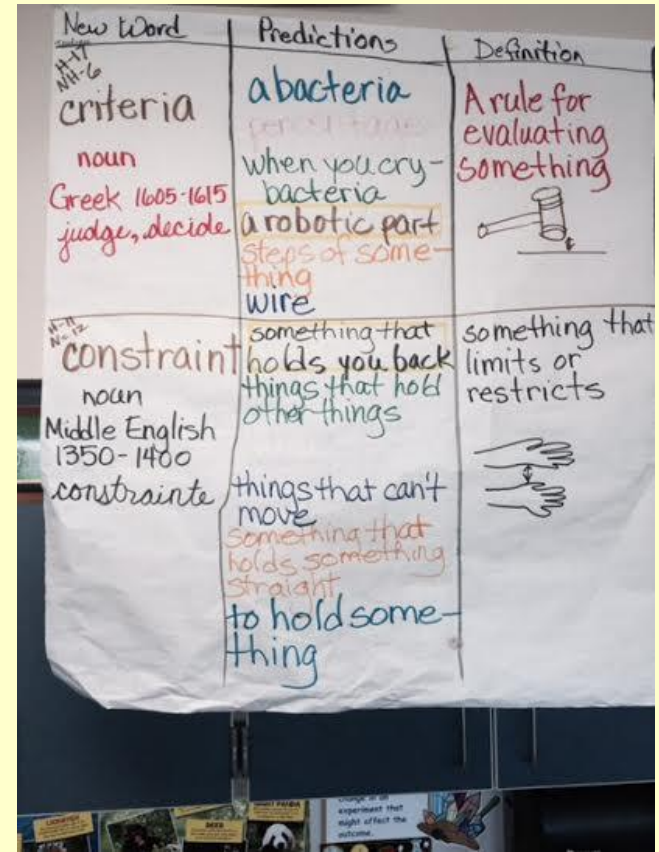 New Word
Predictions
Definition
H-17
NH-6
criteria
noun
Greek 1605-1615
judge, decide
a bacteria
percentage
when you cry-
bacteria
a robotic part
steps of some-
thing
wire
A rule for
evaluating
something
constraint
noun
Middle English
1350-1400
constrainte
something that
holds you back
things that hold
other things
things that can't
move
something that
holds something
straight
to hold some-
thing
something that
limits or
restricts
change in an
experiment that
might affect the
outcome.